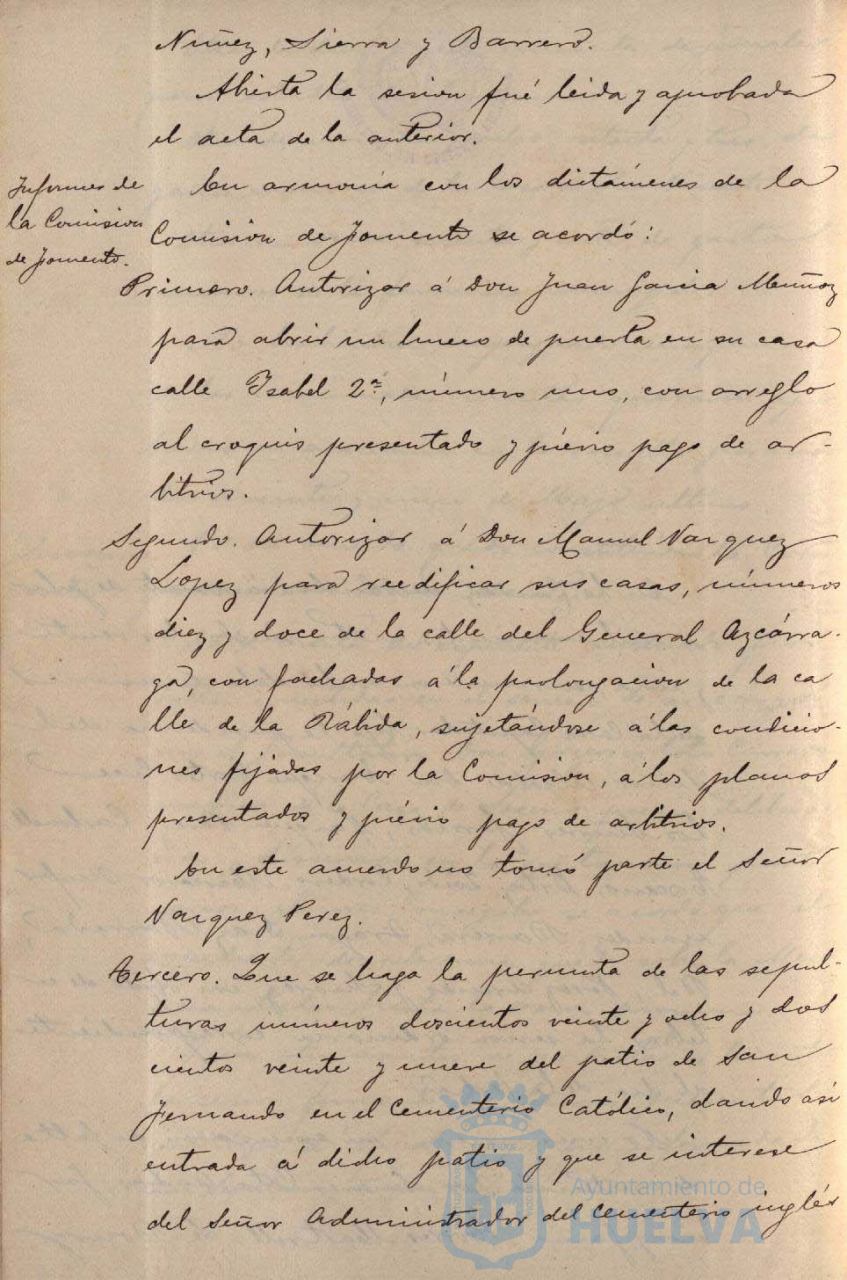 Nuñez, Sierra y Barrero.
Abierta la sesion fué leida y aprobada
el acta de la anterior.
Informes de
la Comision
de Fomento.
En armonía con los dictámenes de la
Comision de Fomento se acordó:
Primero. Autorizar á Don Juan Garcia Muñoz
para abrir un hueco de puerta en su casa
calle Isabel 2ª, número uno, con arreglo
al croquis presentado y prévio pago de ar-
bitrios.
Segundo. Autorizar á Don Manuel Vazquez
Lopez para reedificar sus casas, números
diez y doce de la calle del General Azcárra-
ga, con fachadas á la prolongacion de la ca
lle de la Rábida, sujetándose á las condicio-
nes fijadas por la Comision, á los planos
presentados y prévio pago de arbitrios.
En este acuerdo no tomó parte el Señor
Vazquez Perez.
Tercero. Que se haga la permuta de las sepul-
turas números doscientos veinte y ocho y dos
cientos veinte y nueve del patio de San
Fernando en el Cementerio Católico, dando así
entrada á dicho patio y que se interese
del Señor Administrador del Cementerio inglés
Ayuntamiento de
HUELVA